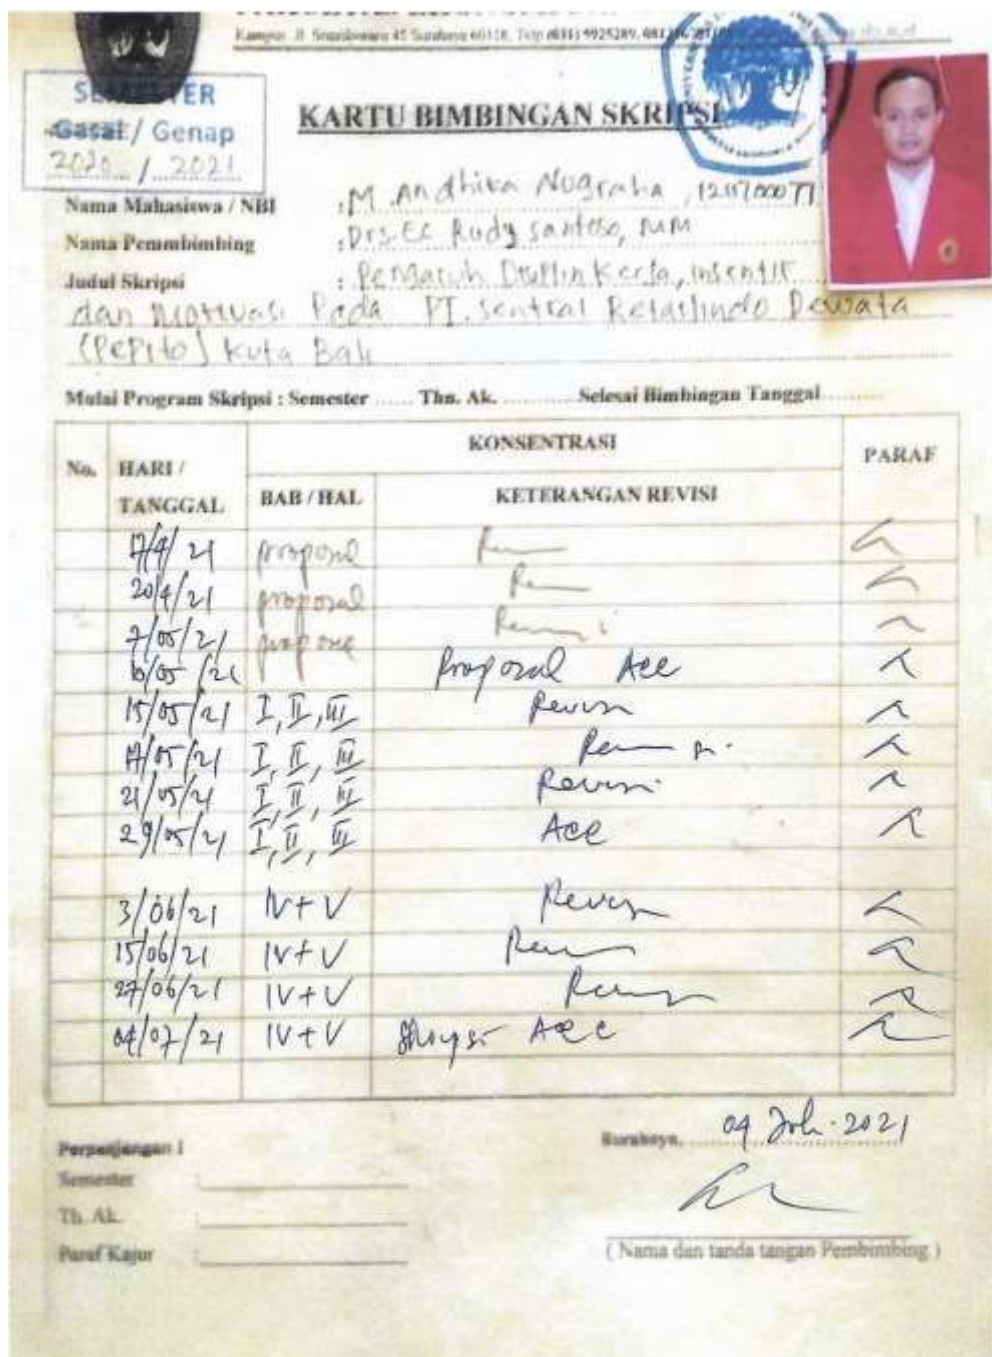 Kampus Jl. Semolowaru 45 Surabaya 60118, Telp (031) 5925289,
SEMESTER
Gasal / Genap
2020 / 2021
KARTU BIMBINGAN SKRIPSI
Nama Mahasiswa / NBI : M. Andhika Nugraha, 1211700077
Nama Pemmbimbing : Drs. Ec Rudy santoso, MM
Judul Skripsi : Pengaruh Disiplin Kerja, insentif
dan Motivasi Pada PT. Sentral Retailindo Dewata
(PEPito) Kuta Bali
Mulai Program Skripsi : Semester ...... Thn. Ak. .......... Selesai Bimbingan Tanggal..........
No. HARI / TANGGAL KONSENTRASI PARAF
BAB / HAL KETERANGAN REVISI
17/4/21 proposal
20/4/21 proposal
7/05/21 propose Revisi
10/05/21 Proposal Acc
15/05/21 I, II, III Revisi
17/05/21 I, II, III Revisi
21/05/21 I, II, III Revisi
29/05/21 I, II, III Acc
3/06/21 IV + V Revisi
15/06/21 IV + V Revisi
27/06/21 IV + V Revisi
04/07/21 IV + V Skripsi Acc
Surabaya, 04 Juli 2021
Perpanjangan I
Semester :
Th. Ak. :
Paraf Kajur :
( Nama dan tanda tangan Pembimbing )